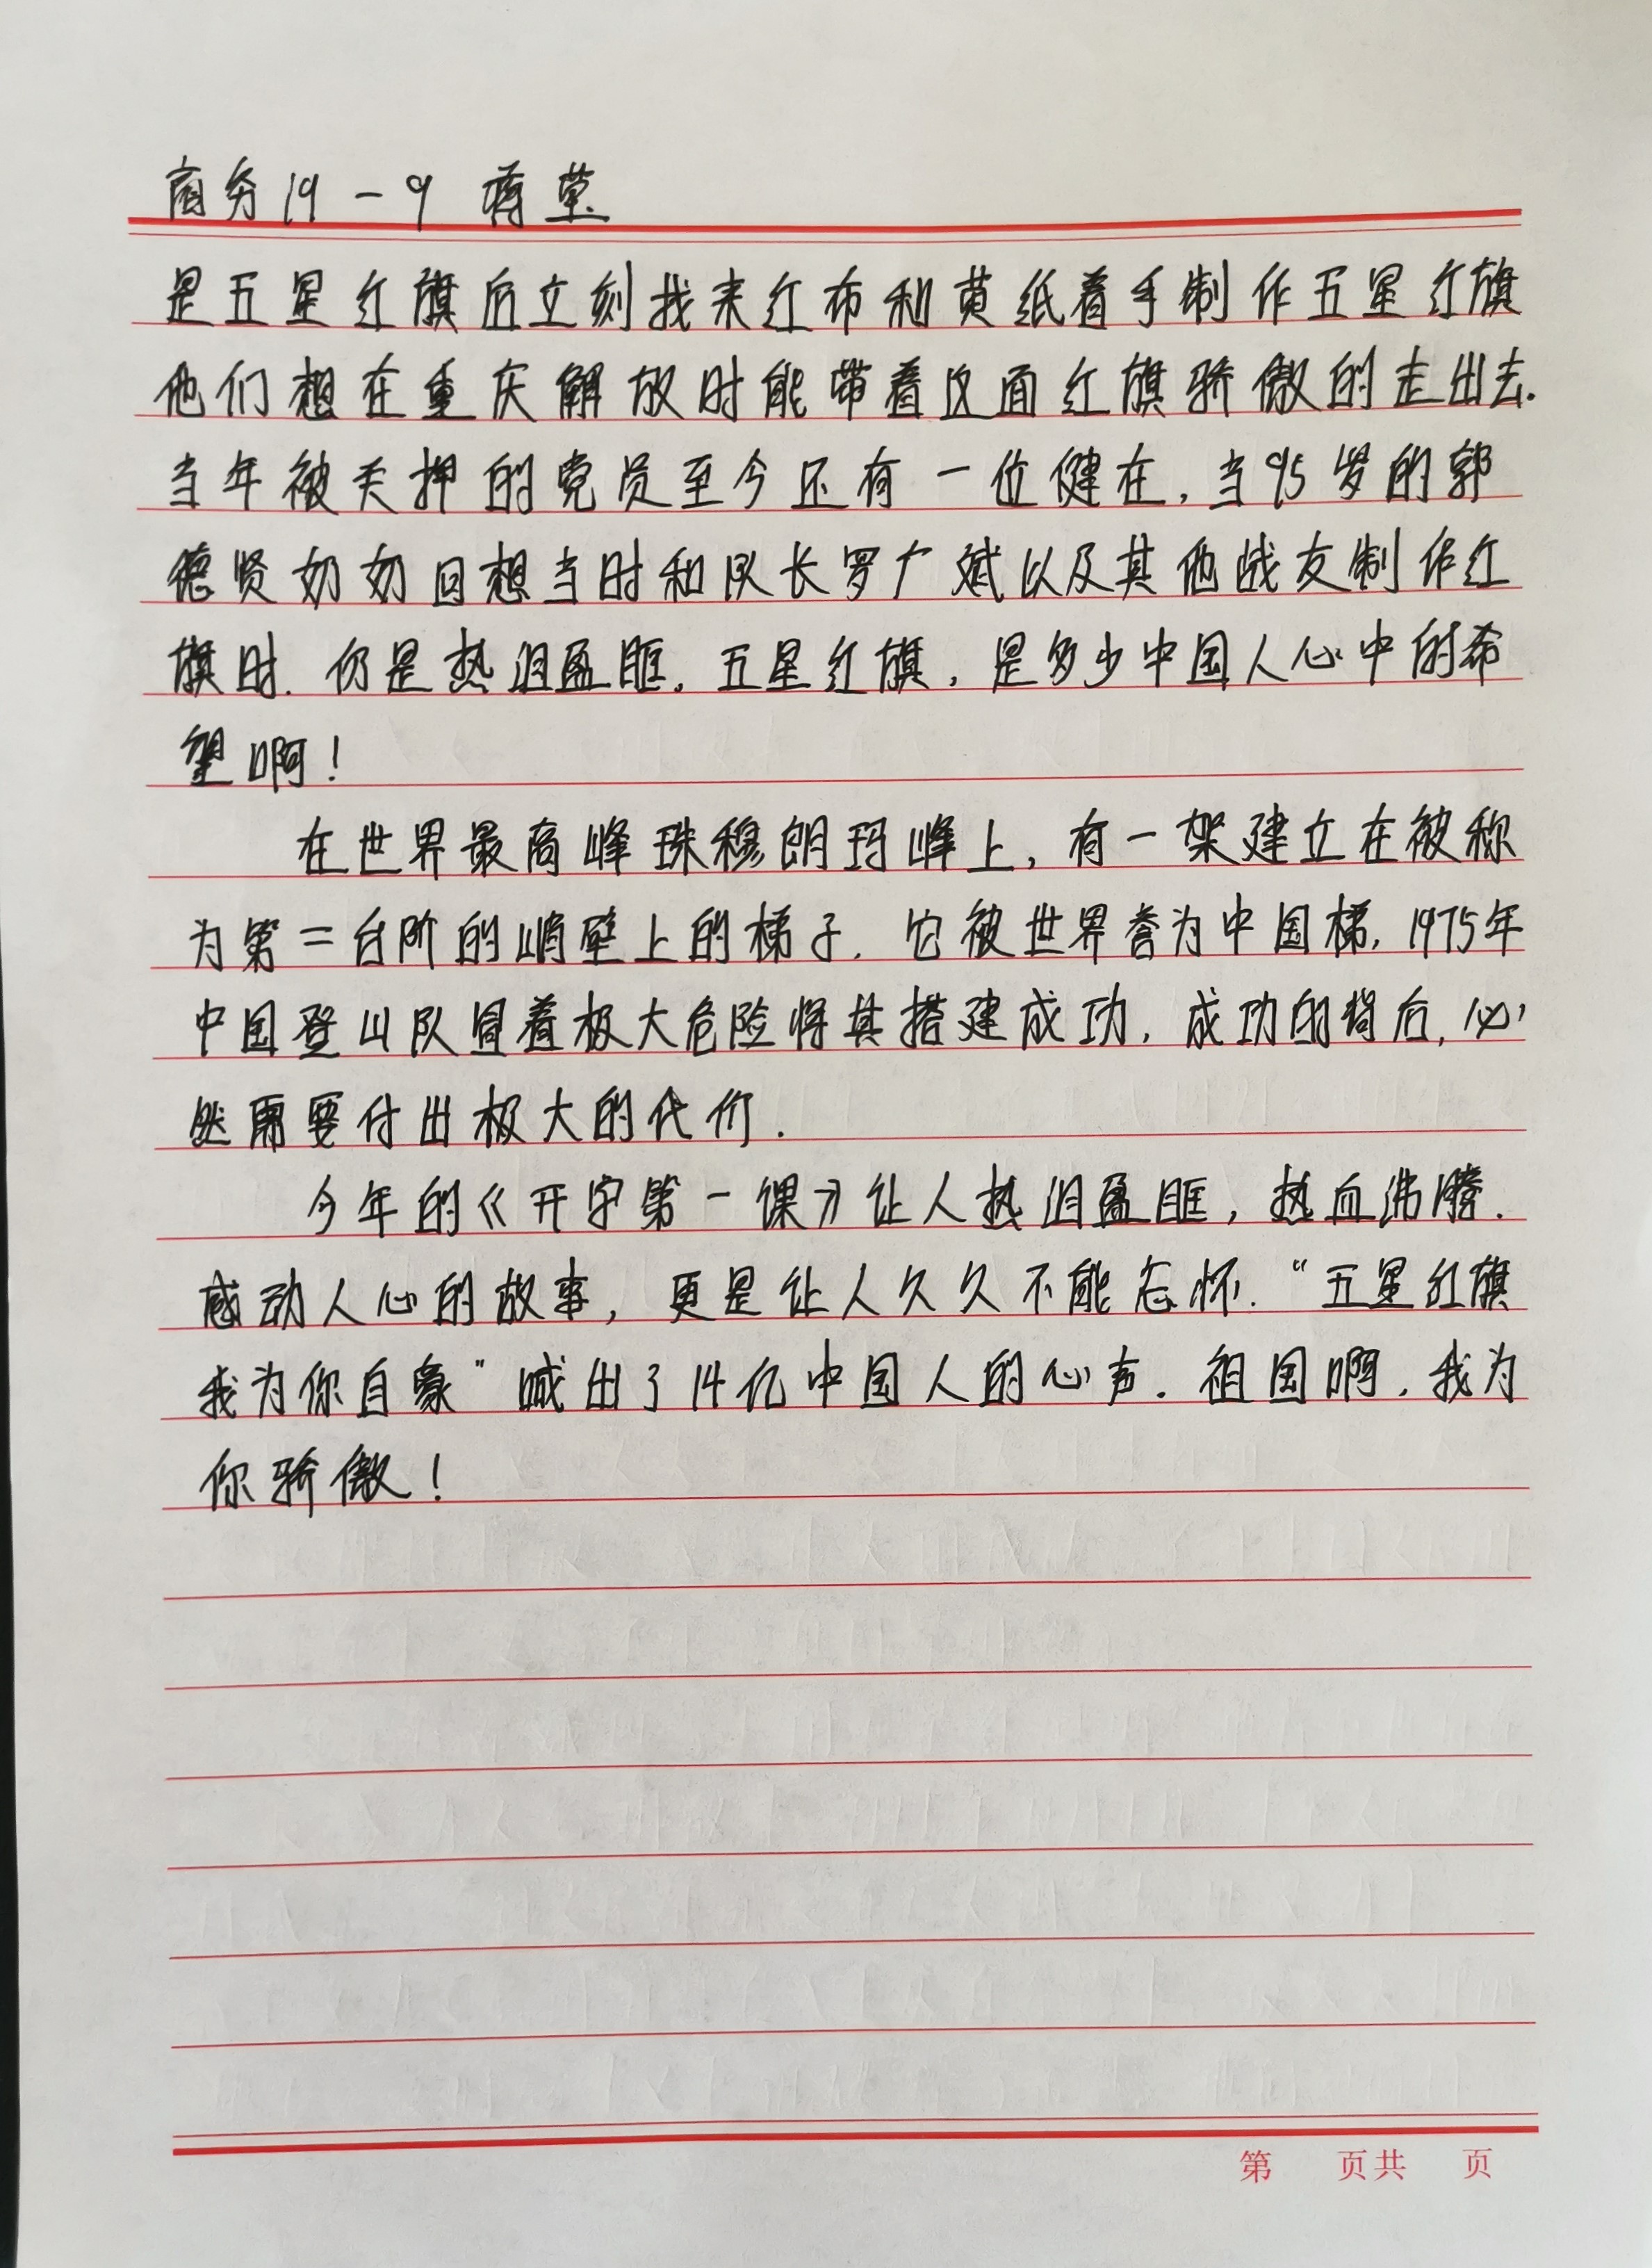 商务19-9 蒋莹
是五星红旗后立刻找来红布和黄纸着手制作五星红旗
他们想在重庆解放时能带着这面红旗骄傲的走出去.
当年被关押的党员至今还有一位健在,当95岁的郭
德贤奶奶回想当时和队长罗广斌以及其他战友制作红
旗时.仍是热泪盈眶.五星红旗,是多少中国人心中的希
望啊!
在世界最高峰珠穆朗玛峰上,有一架建立在被称
为第二台阶的峭壁上的梯子.它被世界誉为中国梯,1975年
中国登山队冒着极大危险将其搭建成功,成功的背后,必
然需要付出极大的代价.
今年的《开学第一课》让人热泪盈眶,热血沸腾.
感动人心的故事,更是让人久久不能忘怀."五星红旗
我为你自豪"喊出了14亿中国人的心声.祖国啊,我为
你骄傲!
第 页共 页